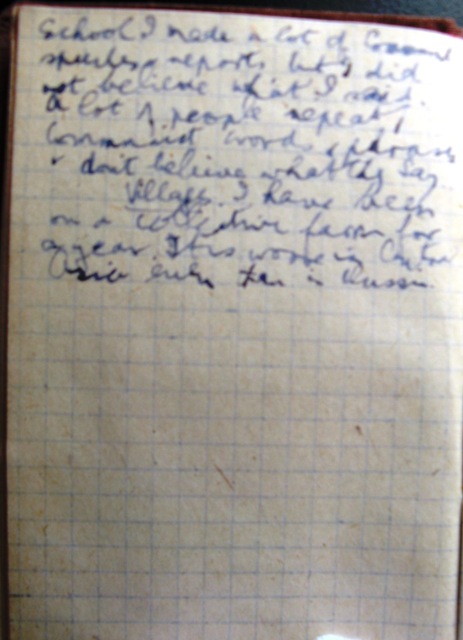 School I made a lot of Commun
speeches & reports but I did
not believe what I said.
A lot of people repeat
Communist words & phrases
& don't believive what they say.
Village. I have been
on a collective farm for
a year. It is worse in Central
Asia even than in Russia.